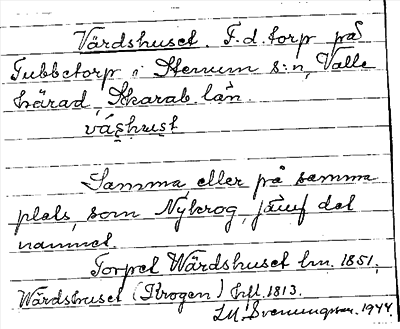 Värdshuset. F.d. torp på
Tubbetorp i Stenum s:n, Valle
härad, Skarab. län.
vás̱hus̱t
Samma, eller på samma
plats, som Nykrog, jämf det
namnet.
Torpet Wärdshuset hn. 1851,
Wärdshuset (Krogen) hfl. 1813.
Svenungsson. 1944.